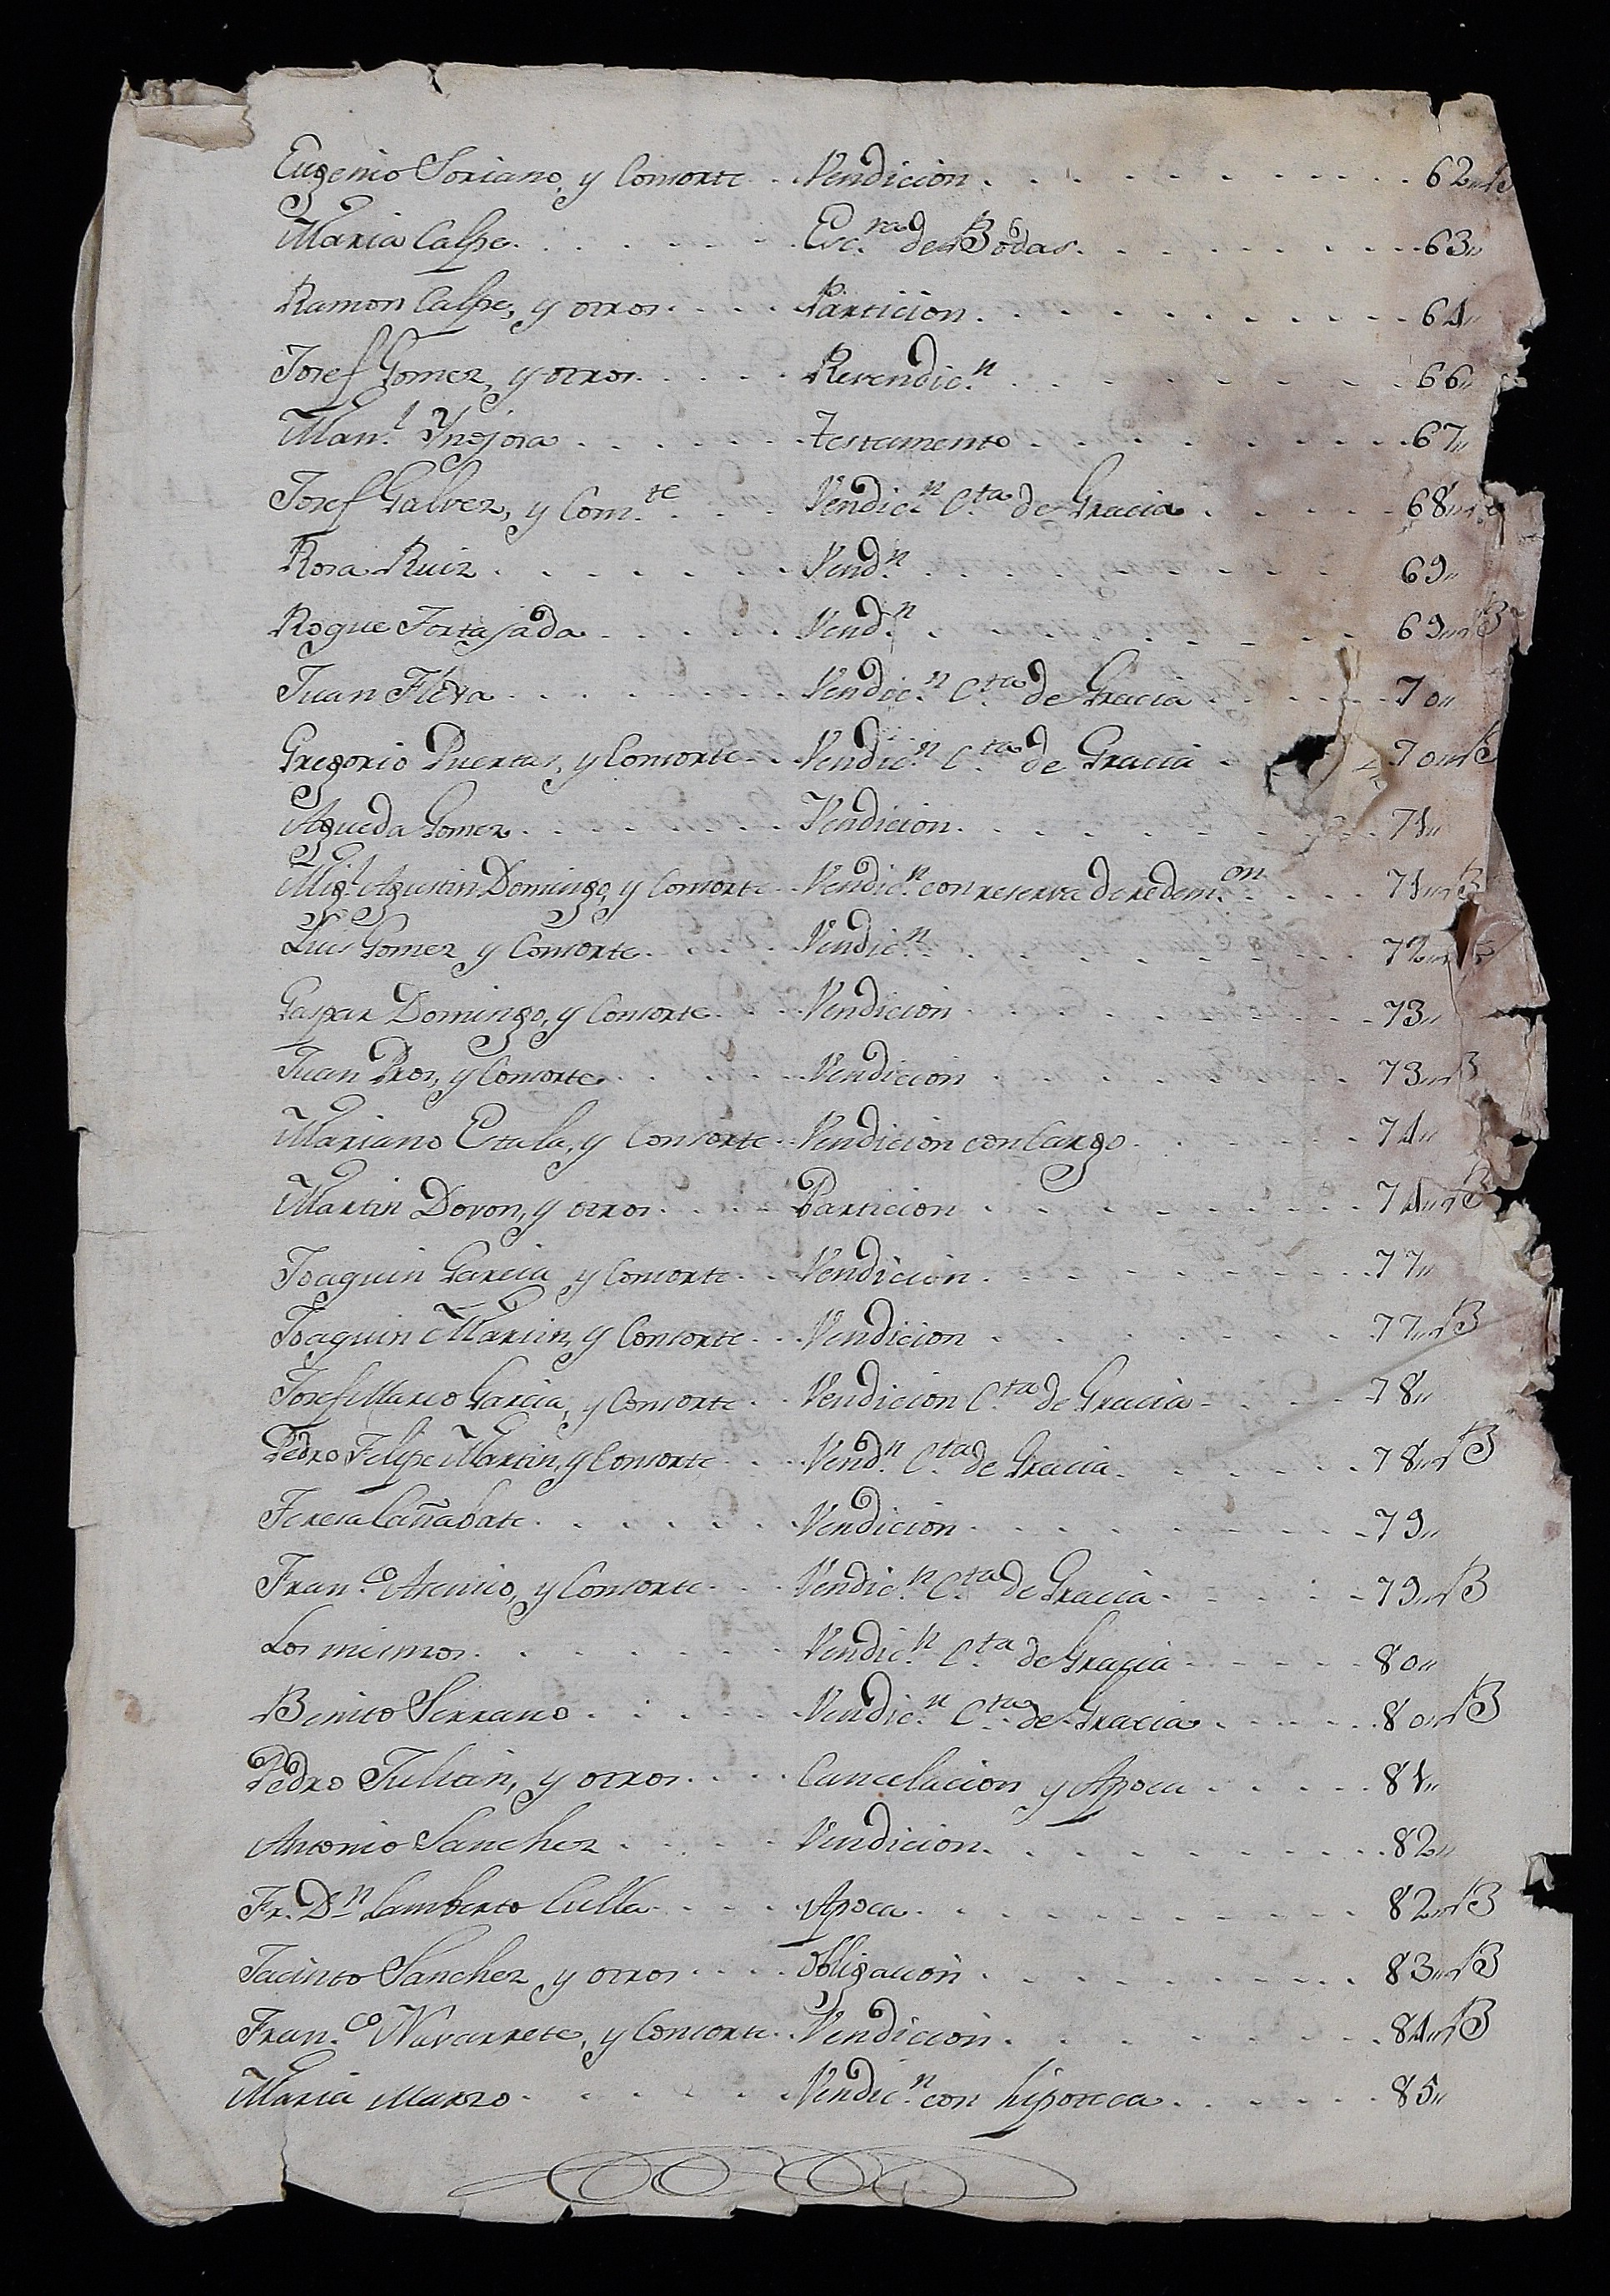 Eugenio Soriano, y Consorte . . Vendicion . . . . . . . . . 62
Maria Calpe . . . . . . Esc.ra de Bodas . . . . . . . . . 63,,
Ramon Calpe, y otros . . . . Particion . . . . . . . . . 64,,
Josef Gomez, y otros . . . . Revendic.n . . . . . . . . 66,,
Man.l Ynojosa . . . . . Testamento . . . . . . . . . 67,,
Josef Galvez, y Cons.te . . . Vendic.n C.ta de Gracia . . . . . 68
Rosa Ruiz . . . . . . Vend.n . . . . . . . . . 69,,
Roque Tortajada . . . . . Vend.n . . . . . . . . . 69,, B
Juan Fleta . . . . . . Vendic.n C.ta de Gracia . . . . . 70,,
Gregorio Puertas, y Consorte . . Vendic.n C.ta de Gracia . . . 70,,
Agueda Gomez . . . . . . Vendicion . . . . . . . . . 71,,
Mig.l Agustin Domingo, y Consorte . Vendic.n con reserva de redem.on . . . 71,, B
Luis Gomez y Consorte . . . . Vendic.n . . . . . . . . . 72
Gaspar Domingo, y Consorte . . . Vendicion . . . . . . . . 73,,
Juan Pros, y Consorte . . . . Vendicion . . . . . . . . 73,, B
Mariano Estala, y Consorte . . Vendicion con Cargo . . . . . . 74,,
Martin Dovon, y otros . . . . Particion . . . . . . . . 74,, B
Joaquin Garcia y Consorte . . Vendicion . . . . . . . . 77,,
Joaquin Martin, y Consorte . . Vendicion . . . . . . . . 77,, B
Josef Marco Garcia, y Consorte . . Vendicion C.ta de Gracia . . . . 78,,
Pedro Felipe Martin, y Consorte . . . Vend.n C.ta de Gracia . . . . . 78,, B
Teresa Cañabate . . . . . . Vendicion . . . . . . . . 79,,
Fran.co Asensio, y Consorte . . . Vendic.n C.ta de Gracia . . . . . 79,, B
Los mismos . . . . . . Vendic.n C.ta de Gracia . . . . . 80,,
Benito Serrano . . . . . Vendic.n C.ta de Gracia . . . . . 80,, B
Pedro Julian, y otros . . . . Cancelacion y Apoca . . . . . 81,,
Antonio Sanchez . . . . Vendicion . . . . . . . . 82,,
Fr. D.n Lamberto Culla . . . . Apoca . . . . . . . . . 82,, B
Jacinto Sanchez y otros . . . . Obligacion . . . . . . . . 83,, B
Fran.co Navarrete, y Consorte . . Vendicion . . . . . . . . 84,, B
Maria Marzo . . . . . . Vendic.n con hipoteca . . . . . . 85,,